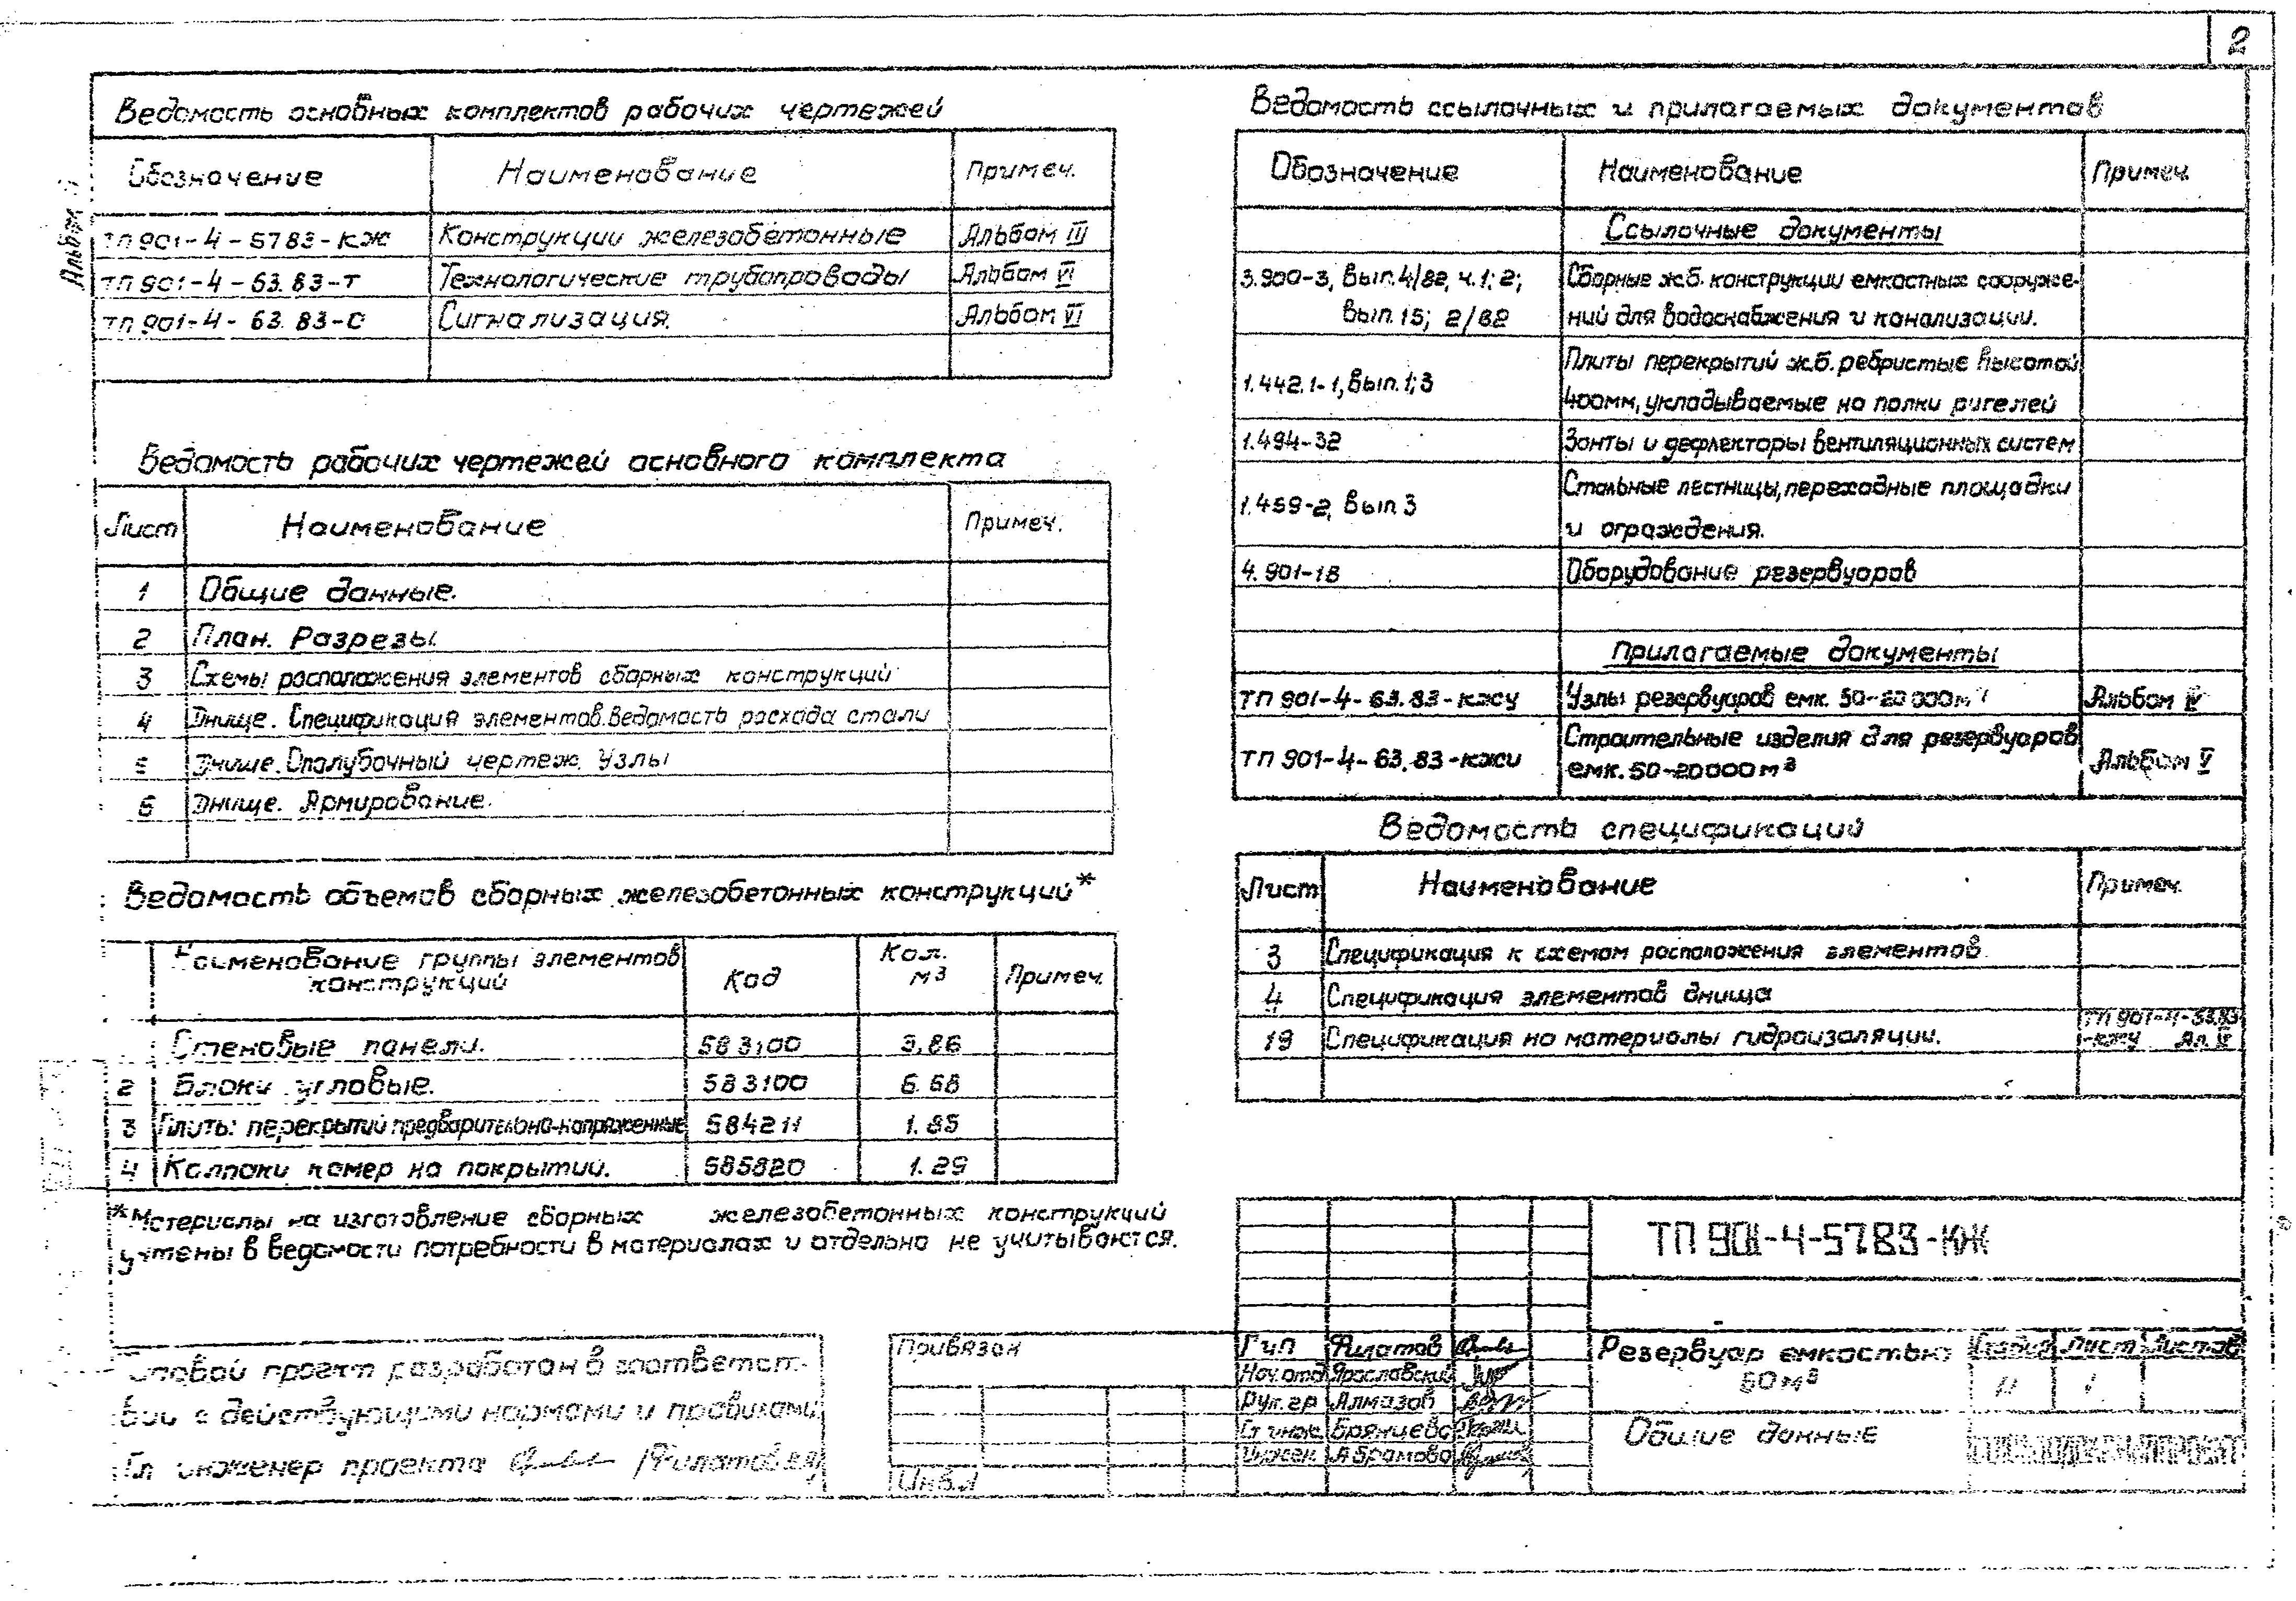 2
Альбом
Ведомость основных комплектов рабочих чертежей
Обозначение Наименование Примеч.
ТП 901-4-57.83-КЖ Конструкции железобетонные Альбом III
ТП 901-4-63.83-Т Технологические трубопроводы Альбом VI
ТП 901-4-63.83-С Сигнализация. Альбом VI
Ведомость рабочих чертежей основного комплекта
Лист Наименование Примеч.
1 Общие данные.
2 План. Разрезы.
3 Схемы расположения элементов сборных конструкций
4 Днище. Спецификация элементов. Ведомость расхода стали
5 Днище. Опалубочный чертеж. Узлы
6 Днище. Армирование.
Ведомость объемов сборных железобетонных конструкций*
Наименование группы элементов конструкций Код Кол. м³ Примеч.
Стеновые панели. 583100 3,86
2 Блоки угловые. 583100 6.68
3 Плиты перекрытий предварительно-напряженные 584211 1.85
4 Колпаки камер на покрытии. 585820 1.29
*Материалы на изготовление сборных железобетонных конструкций
учтены в ведомости потребности в материалах и отдельно не учитываются.
Типовой проект разработан в соответст-
вии с действующими нормами и правилами
Гл инженер проекта /Филатов
Привязан
Инв.
Ведомость ссылочных и прилагаемых документов
Обозначение Наименование Примеч.
Ссылочные документы
3.900-3, вып. 4/82, ч. 1; 2; Сборные ж.б. конструкции емкостных сооруже-
вып. 15; 2/82 ний для водоснабжения и канализации.
Плиты перекрытий ж.б. ребристые высотой
1.442.1-1, вып. 1; 3 400мм, укладываемые на полки ригелей
1.494-32 Зонты и дефлекторы вентиляционных систем
Стальные лестницы, переходные площадки
1.459-2, вып 3 и ограждения.
4.901-18 Оборудование резервуаров
Прилагаемые документы
ТП 901-4-63.83-кжу Узлы резервуаров емк. 50-20000м³ Альбом IV
Строительные изделия для резервуаров
ТП 901-4-63.83-кжи емк. 50-20000м³ Альбом V
Ведомость спецификаций
Лист Наименование Примеч.
3 Спецификация к схемам расположения элементов
4 Спецификация элементов днища
19 Спецификация на материалы гидроизоляции. ТП 901-4-63.83
-кжу Ал. IV
ТП 901-4-57.83-КЖ
ГИП Филатов
Нач.отд Ярославский
Рук.гр Алмазов
Ст инж Брянцева
Инжен. Абрамова
Резервуар емкостью
50м³
Стадия Лист Листов
1
Общие данные